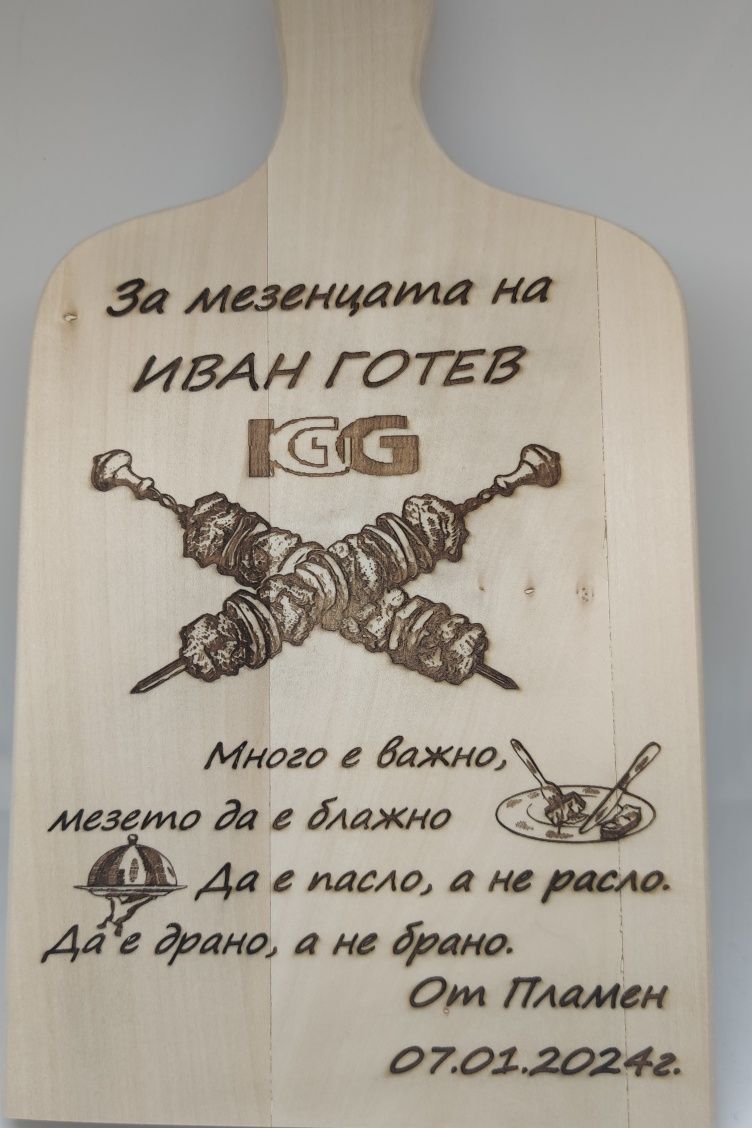 За мезенцата на
ИВАН ГОТЕВ
IGG
Много е важно,
мезето да е блажно
Да е пасло, а не расло.
Да е драно, а не брано.
От Пламен
07.01.2024г.